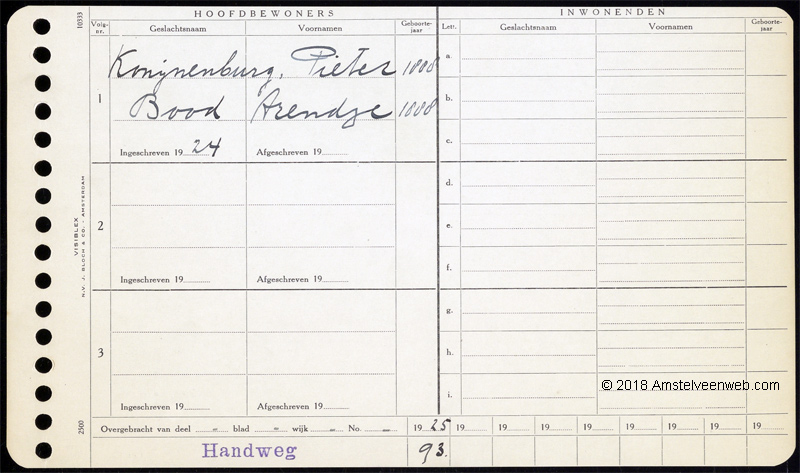 HOOFDBEWONERS INWONENDEN
Volg-nr. Geslachtsnaam Voornamen Geboorte-jaar Lett. Geslachtsnaam Voornamen Geboorte-jaar
10333
1
Konijnenburg, Pieter 1888
Bood Arendje 1888
Ingeschreven 1924 Afgeschreven 19
a.
b.
c.
2
Ingeschreven 19 Afgeschreven 19
d.
e.
f.
3
Ingeschreven 19 Afgeschreven 19
g.
h.
i.
VISIBLEX
N.V. J. BLOCH & CO. - AMSTERDAM
2500
© 2018 Amstelveenweb.com
Overgebracht van deel - blad - wijk - No. - 1925 19 19 19 19 19 19 19 19
Handweg 93.